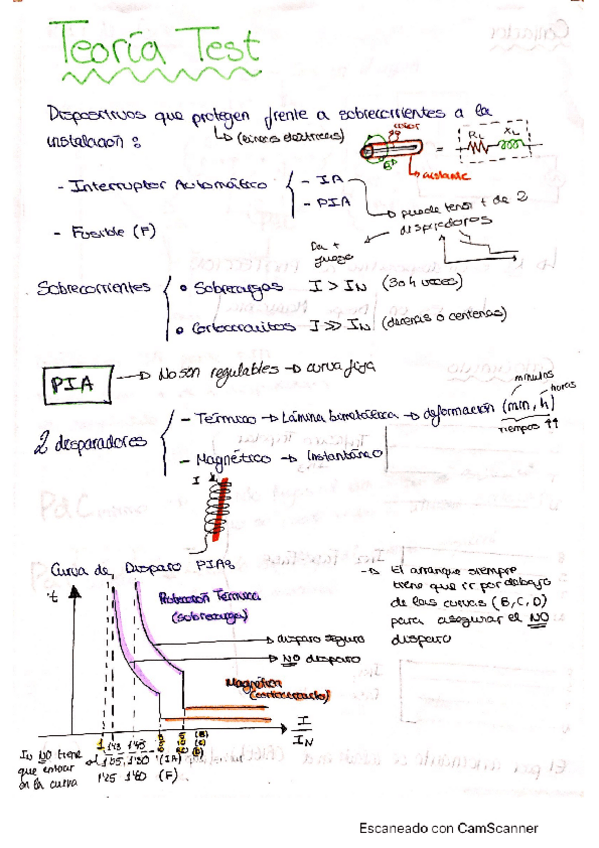 Teoría Test
Dispositivos que protegen frente a sobrecorrientes a la
instalación: (líneas eléctricas)
color
RL XL
=
aislante
- Interruptor Automático - IA
- PIA
puede tener + de 2
disparadores
Da +
juego
- Fusible (F)
Sobrecorrientes
• Sobrecargas I > IN (3 o 4 veces)
• Cortocircuitos I >> IN (decenas ó centenas)
PIA → No son regulables → curva fija
minutos
horas
2 disparadores
- Térmico → Lámina bimetálica → deformación (min, h)
tiempos ↑↑
- Magnético → Instantáneo
I
Curva de Disparo PIAs
t
Protección Térmica
(sobrecarga)
disparo seguro
NO disparo
Magnética
(cortocircuito)
I
IN
→ El arranque siempre
tiene que ir por debajo
de las curvas (B, C, D)
para asegurar el NO
disparo
1 1'13 1'45
3 5 (B)
5 10 (C)
10 20 (D)
IN NO tiene
que entrar
en la curva
1'05 1'30 (IA)
1'25 1'60 (F)
Escaneado con CamScanner